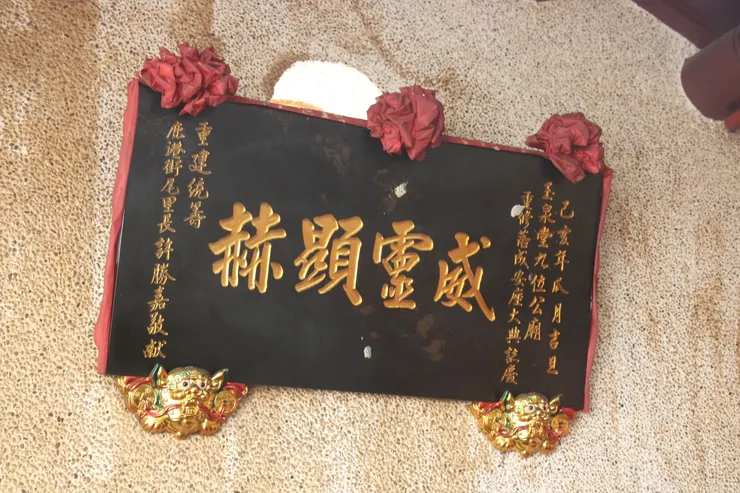 己亥年瓜月吉旦
玉泉堂九位公廟
重修落成安座大典誌慶
威靈顯赫
重建統籌
鹿港街尾里長許勝嘉敬獻